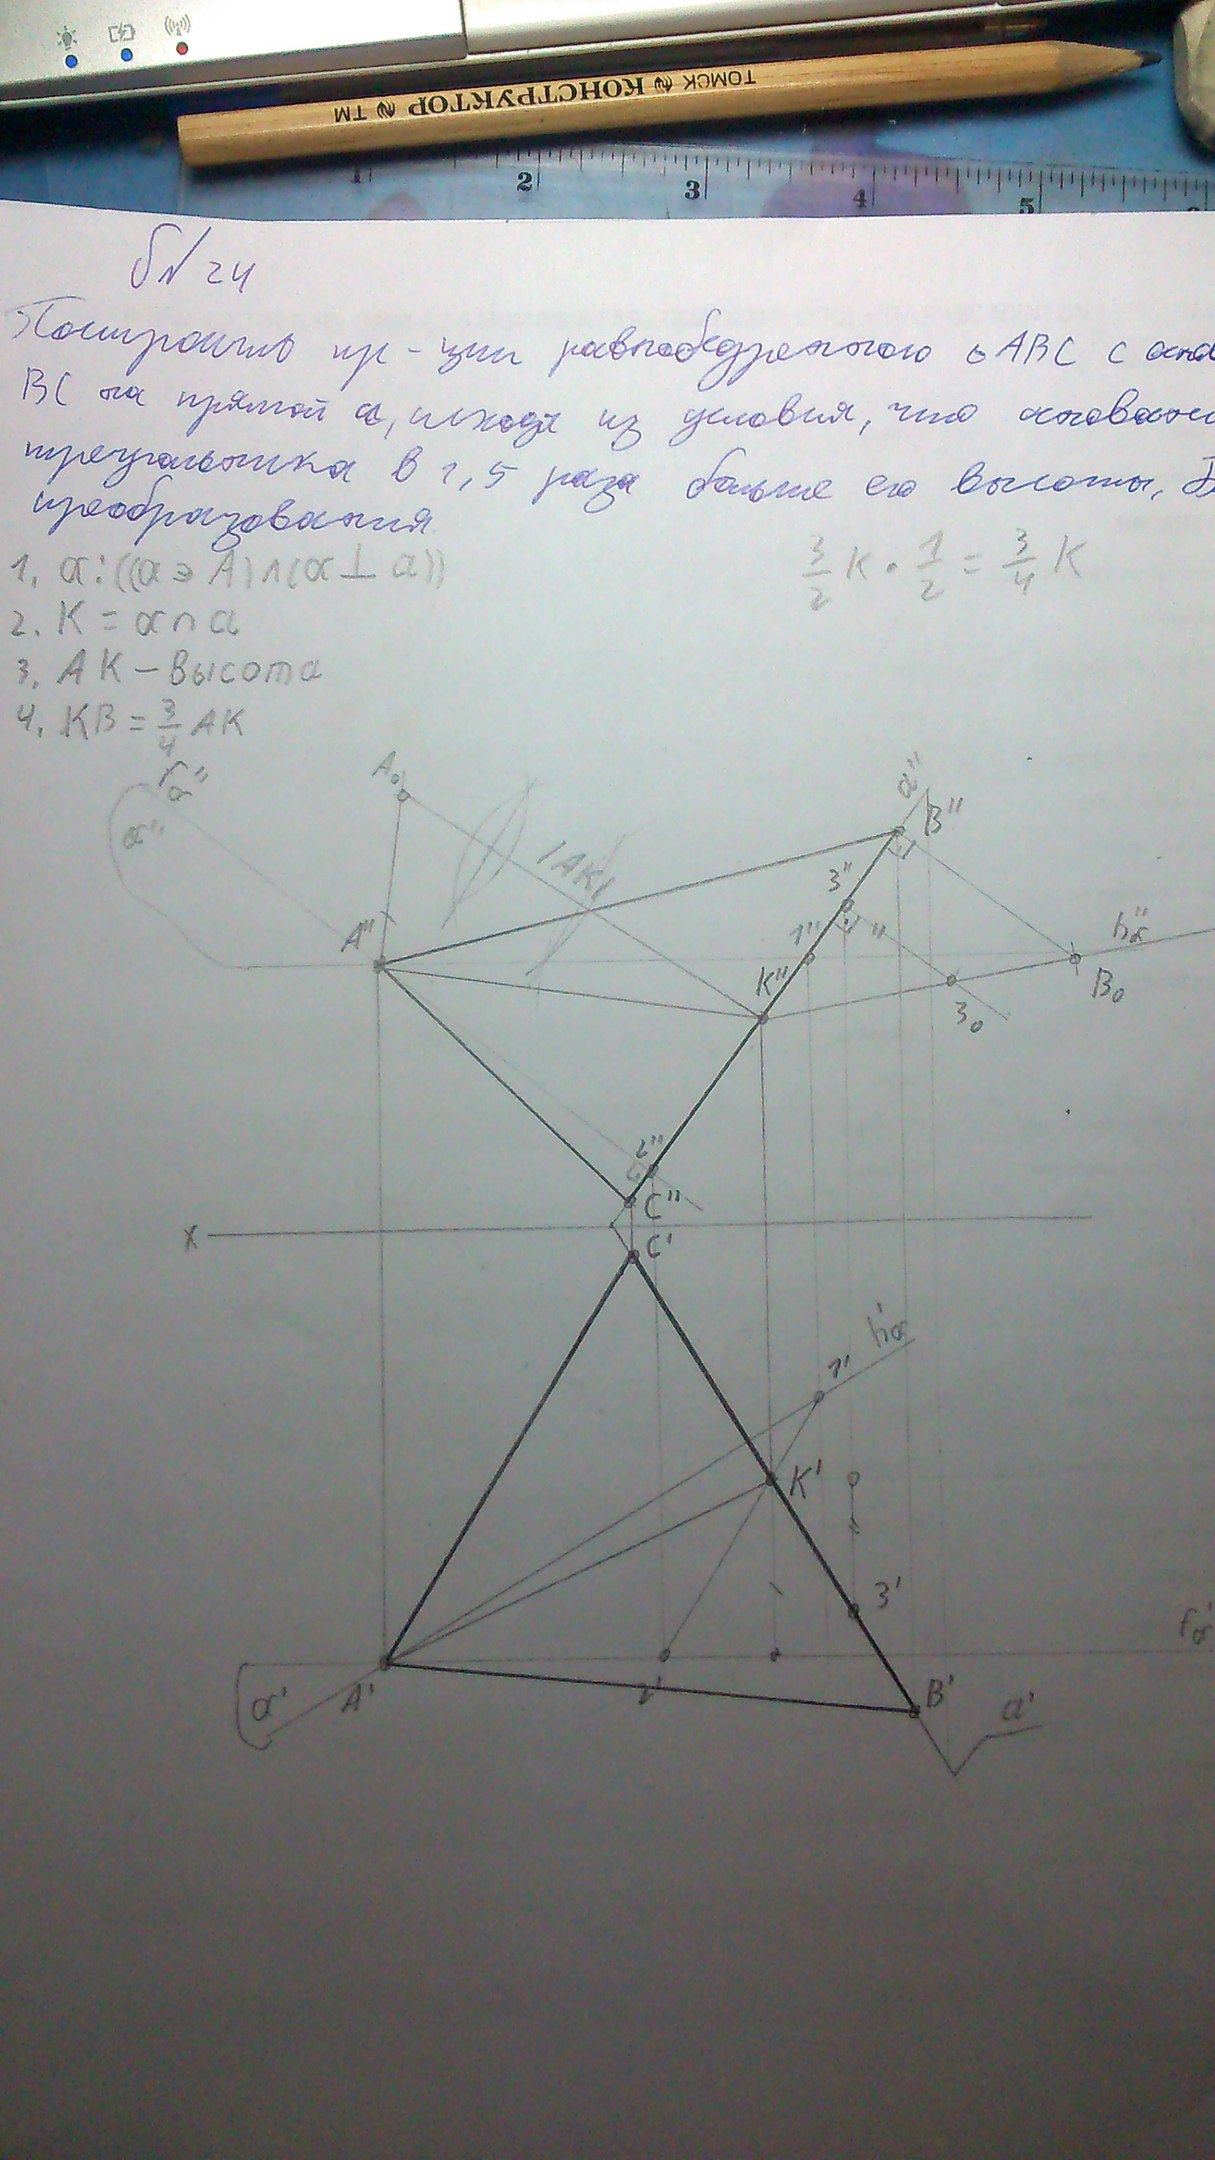 ТОМСК КОНСТРУКТОР ТМ
1 2 3 4 5
б№24
Построить пр-ции равнобедренного △ABC с
BC на прямой a, исходя из условия, что
треугольника в 1,5 раза больше его высоты,
преобразования
1. α:((α∋A)∧(α⊥a))
3/2 K · 1/2 = 3/4 K
2. K = α∩a
3. AK – высота
4. KB = 3/4 AK
A₀
fα"
α"
a"
B"
|AK|
3"
A"
1"
hα"
K"
B₀
3₀
2"
C"
X
C'
h'α
1'
K'
3'
f'α
α'
A'
2'
B'
a'